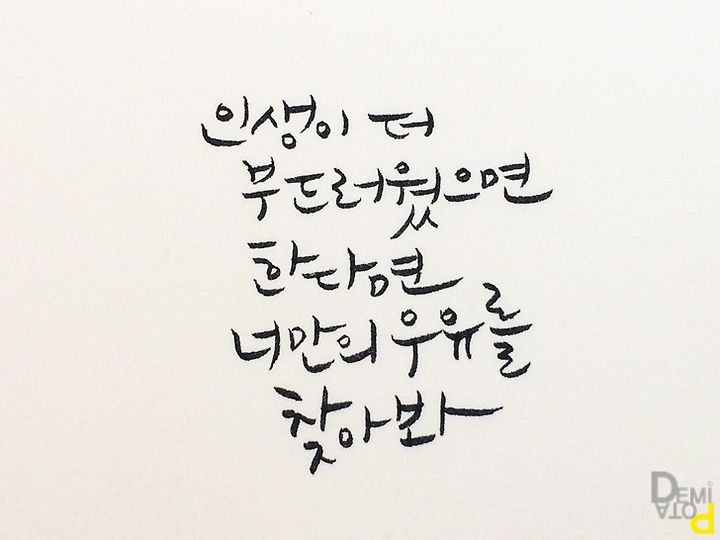 인생이 더
부드러웠으면
한다면
너만의 우유를
찾아봐
DEMI
POTA